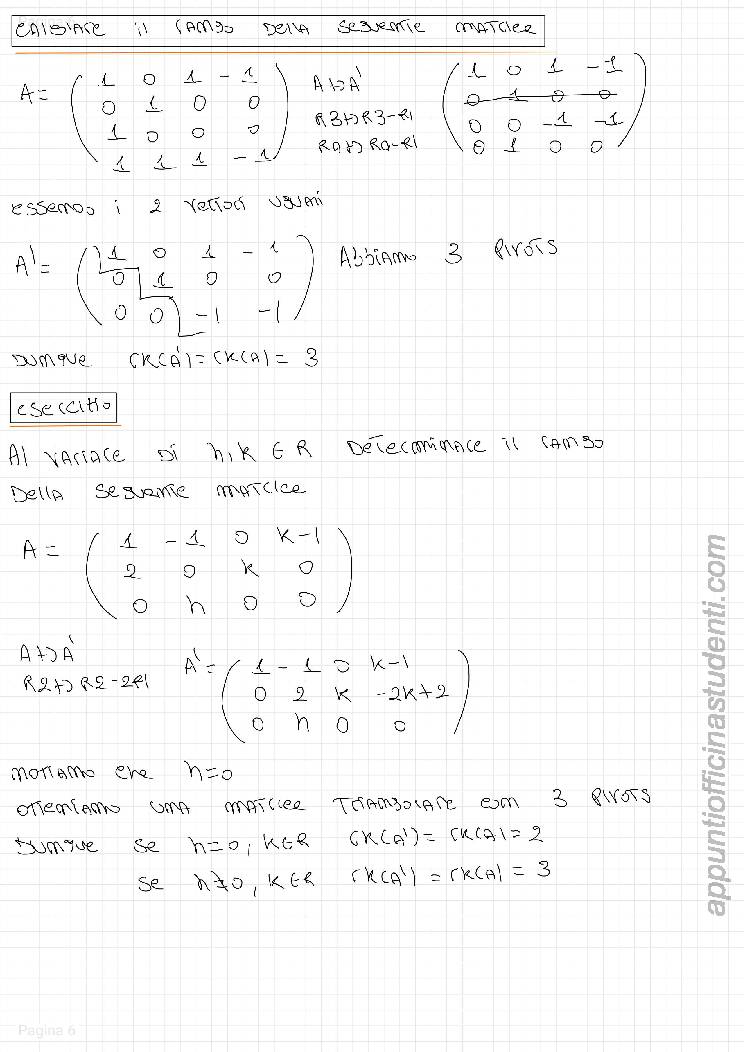 calcolare il rango della seguente matrice
A = ( 1 0 1 -1 A↦A' ( 1 0 1 -1
0 1 0 0 0 1 0 0
1 0 0 0 R3↦R3-R1 0 0 -1 -1
1 1 1 -1 ) R4↦R4-R1 0 1 0 0 )
essendo i 2 vettori uguali
A' = ( 1 0 1 -1 Abbiamo 3 pivots
0 1 0 0
0 0 -1 -1 )
dunque rk(A') = rk(A) = 3
esercizio
Al variare di h, k ∈ R determinare il rango
della seguente matrice
A = ( 1 -1 0 k-1
2 0 k 0
0 h 0 0 )
A↦A' A' = ( 1 -1 0 k-1
R2↦R2-2R1 0 2 k -2k+2
0 h 0 0 )
notiamo che h=0
otteniamo una matrice triangolare con 3 pivots
dunque se h=0, k∈R rk(A') = rk(A) = 2
se h≠0, k∈R rk(A') = rk(A) = 3
appuntiofficinastudenti.com
Pagina 6